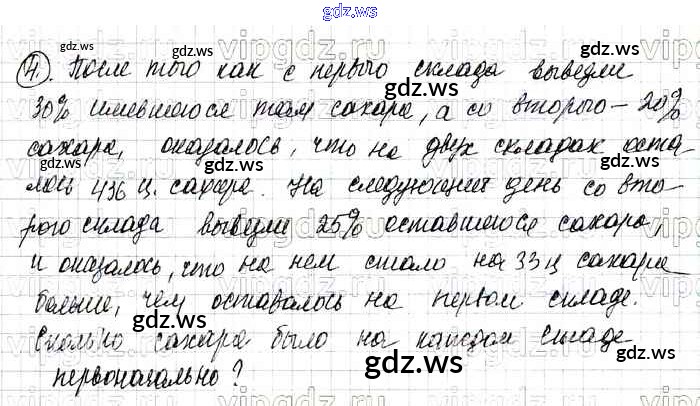 gdz.ws
gdz.ws gdz.ws gdz.ws
4. После того как с первого склада вывезли
30% имевшегося там сахара, а со второго – 20%
сахара, оказалось, что на двух складах оста-
лось 436 ц. сахара. На следующий день со вто-
рого склада вывезли 25% оставшегося сахара
и оказалось, что на нем стало на 33 ц сахара
больше, чем оставалось на первом складе.
Сколько сахара было на каждом складе
первоначально?